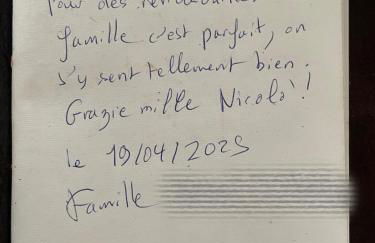 Pour des retrouvailles
famille c'est parfait, on
s'y sent tellement bien.
Grazie mille Nicolò !
le 19/04/2025
Famille